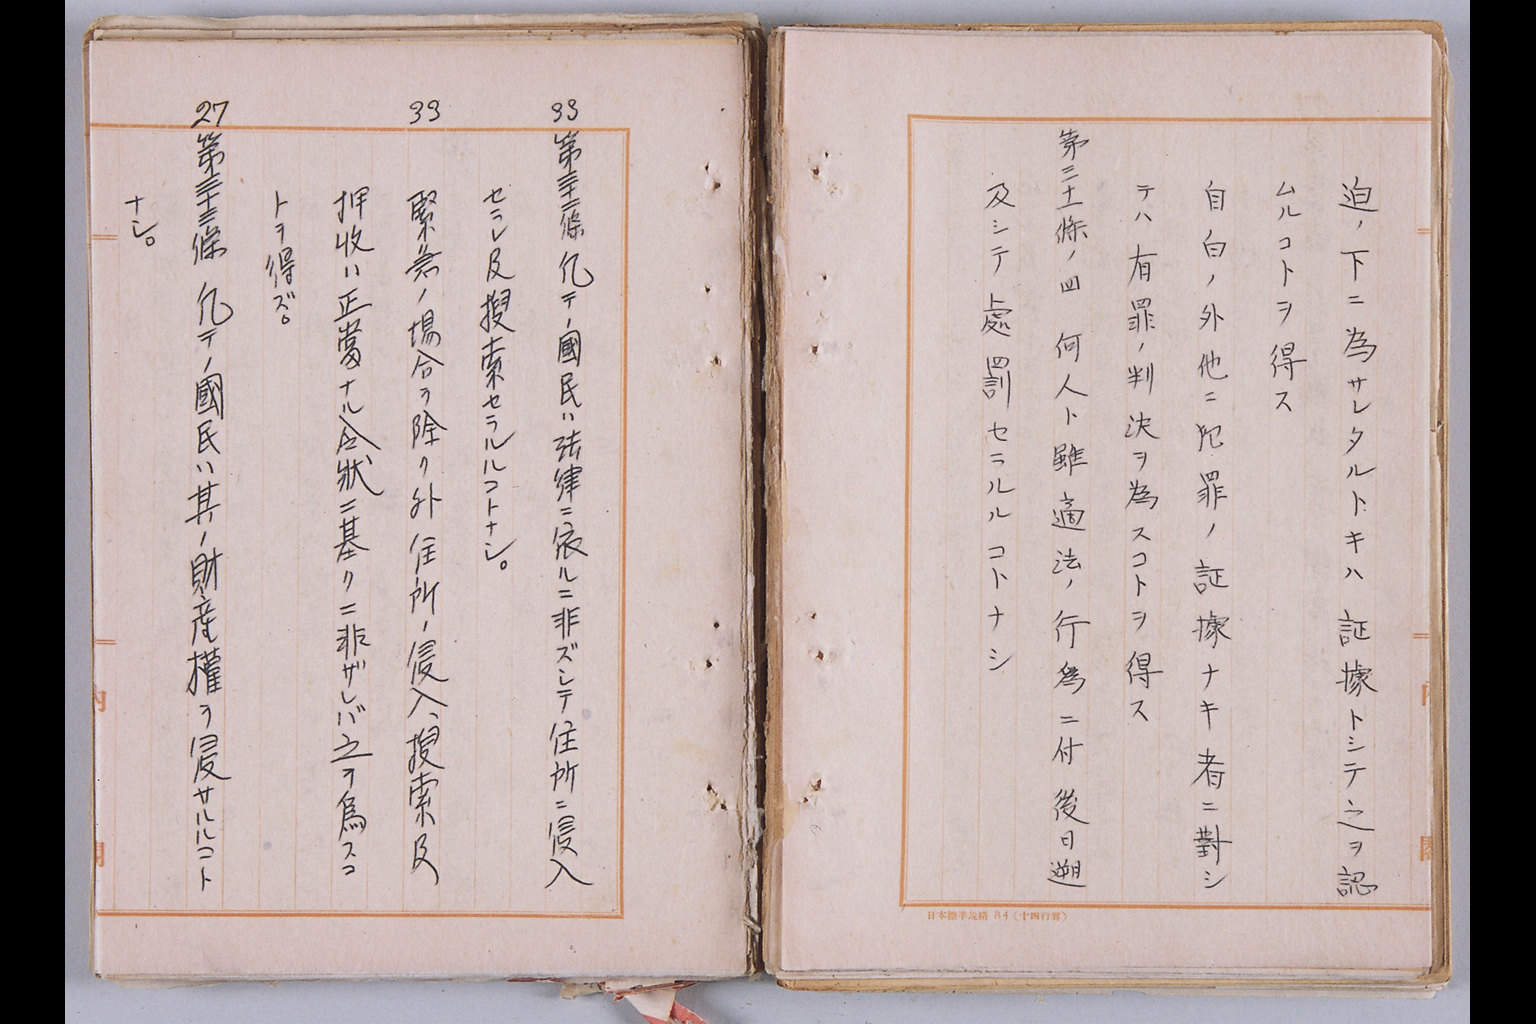 迫ノ下ニ為サレタルトキハ証據トシテ之ヲ認
ムルコトヲ得ス
自白ノ外他ニ犯罪ノ証據ナキ者ニ對シ
テハ有罪ノ判決ヲ為スコトヲ得ス
第三十一條ノ四 何人ト雖適法ノ行為ニ付後日遡
及シテ處罰セラルルコトナシ
日本標準規格 B4(十四行罫)
33
第三十二條 凡テノ國民ハ法律ニ依ルニ非ズシテ住所ニ侵入
セラレ及搜索セラルルコトナシ。
33
緊急ノ場合ヲ除ク外住所ノ侵入、搜索及
押收ハ正當ナル令狀ニ基クニ非ザレバ之ヲ爲スコ
トヲ得ズ。
27
第三十三條 凡テノ國民ハ其ノ財産權ヲ侵サルルコト
ナシ。
內
閣